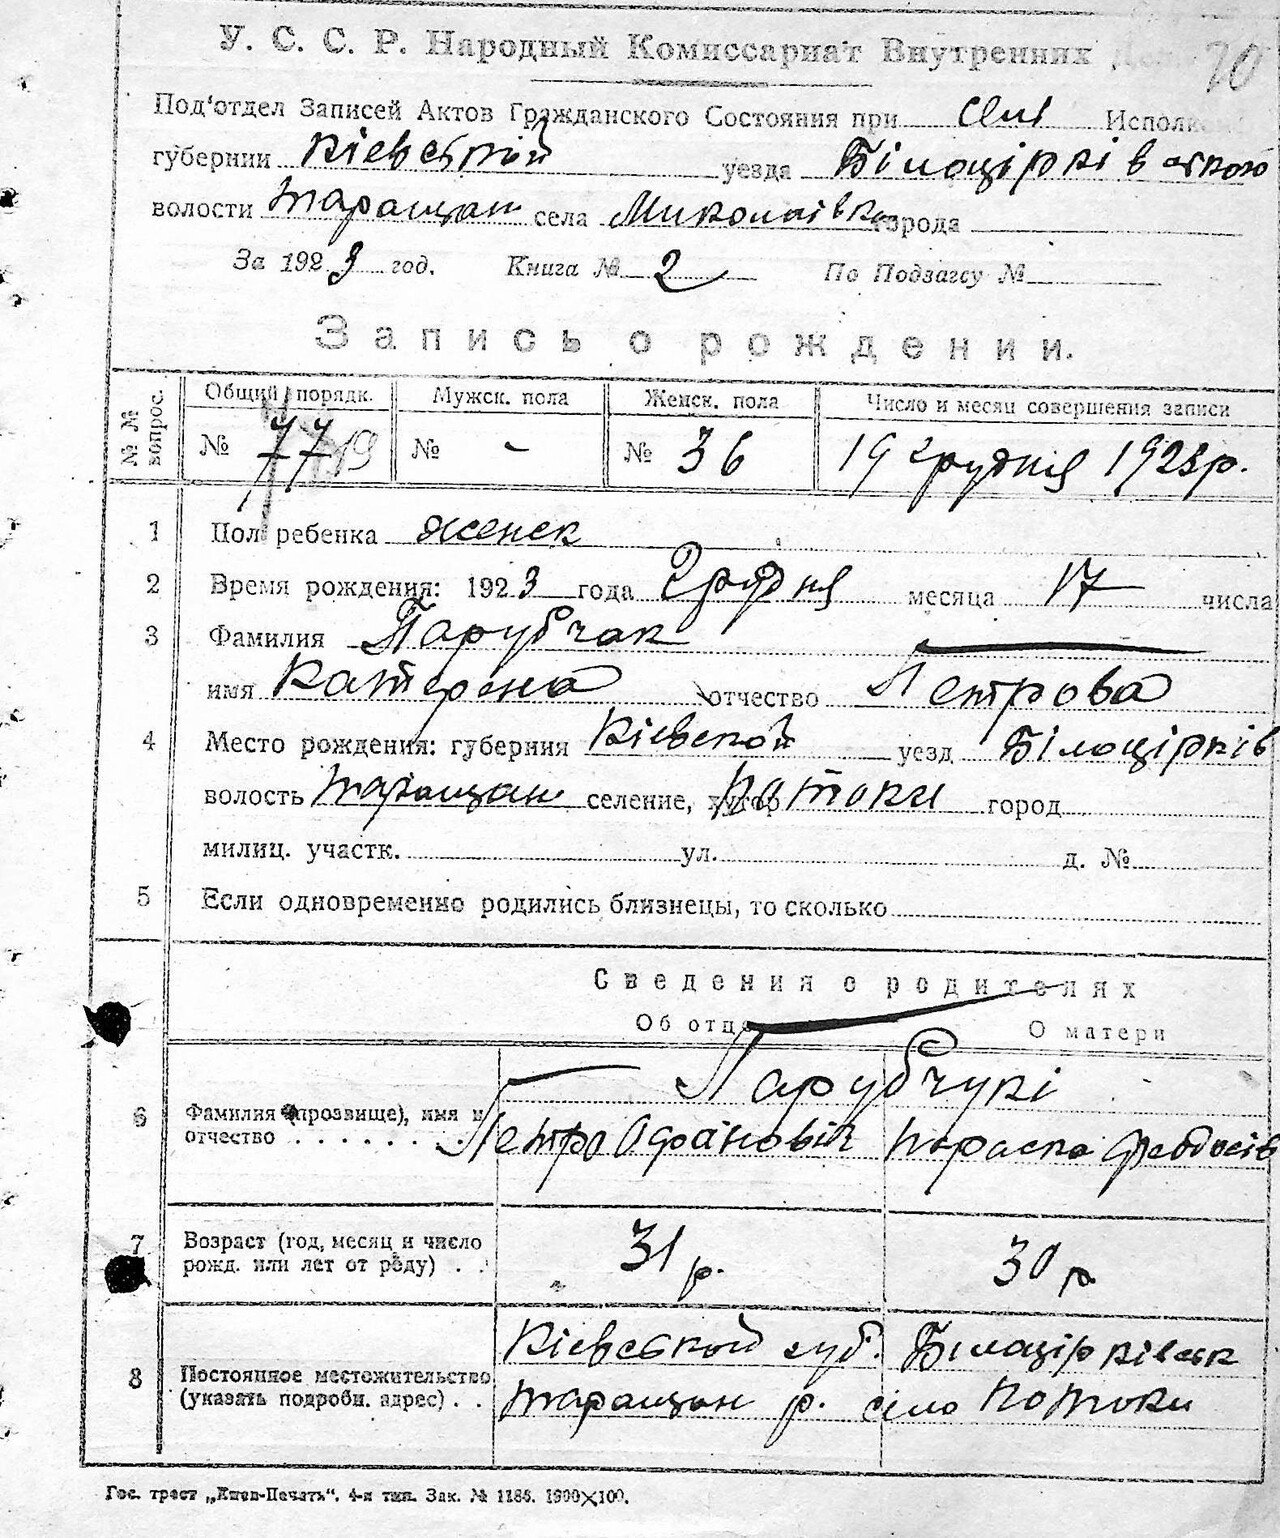 У. С. С. Р. Народный Комиссариат Внутренних 70
Под'отдел Записей Актов Гражданского Состояния при Сель Исполк
губернии Кіевськой уезда Білоцірківського
волости Таращан села Миколаївка города
За 1923 год. Книга № 2 По Подзагсу №
Запись о рождении.
№ № вопрос. Общий порядк. Мужск. пола Женск. пола Число и месяц совершения записи
№ 77 № - № 36 19 грудня 1923 р.
1 Пол ребенка женск
2 Время рождения: 1923 года Грудня месяца 17 числа
3 Фамилия Парубчак
имя Катерена отчество Петрова
4 Место рождения: губерния Кіевской уезд Білоцірків
волость Таращан селение, хутор Потоки город
милиц. участк. ул. д. №
5 Если одновременно родились близнецы, то сколько
Сведения о родителях
Об отце О матери
Парубчукі
6 Фамилия (прозвище), имя и
отчество Петро Параска Феодосів
7 Возраст (год, месяц и число
рожд. или лет от роду) 31 р. 30 р.
Кіевськой губ. Білоцірківськ
8 Постоянное местожительство
(указать подробн. адрес) Таращан р. село Потоки
Гос. трест „Киев-Печать". 4-я тип. Зак. № 1186. 1900×100.